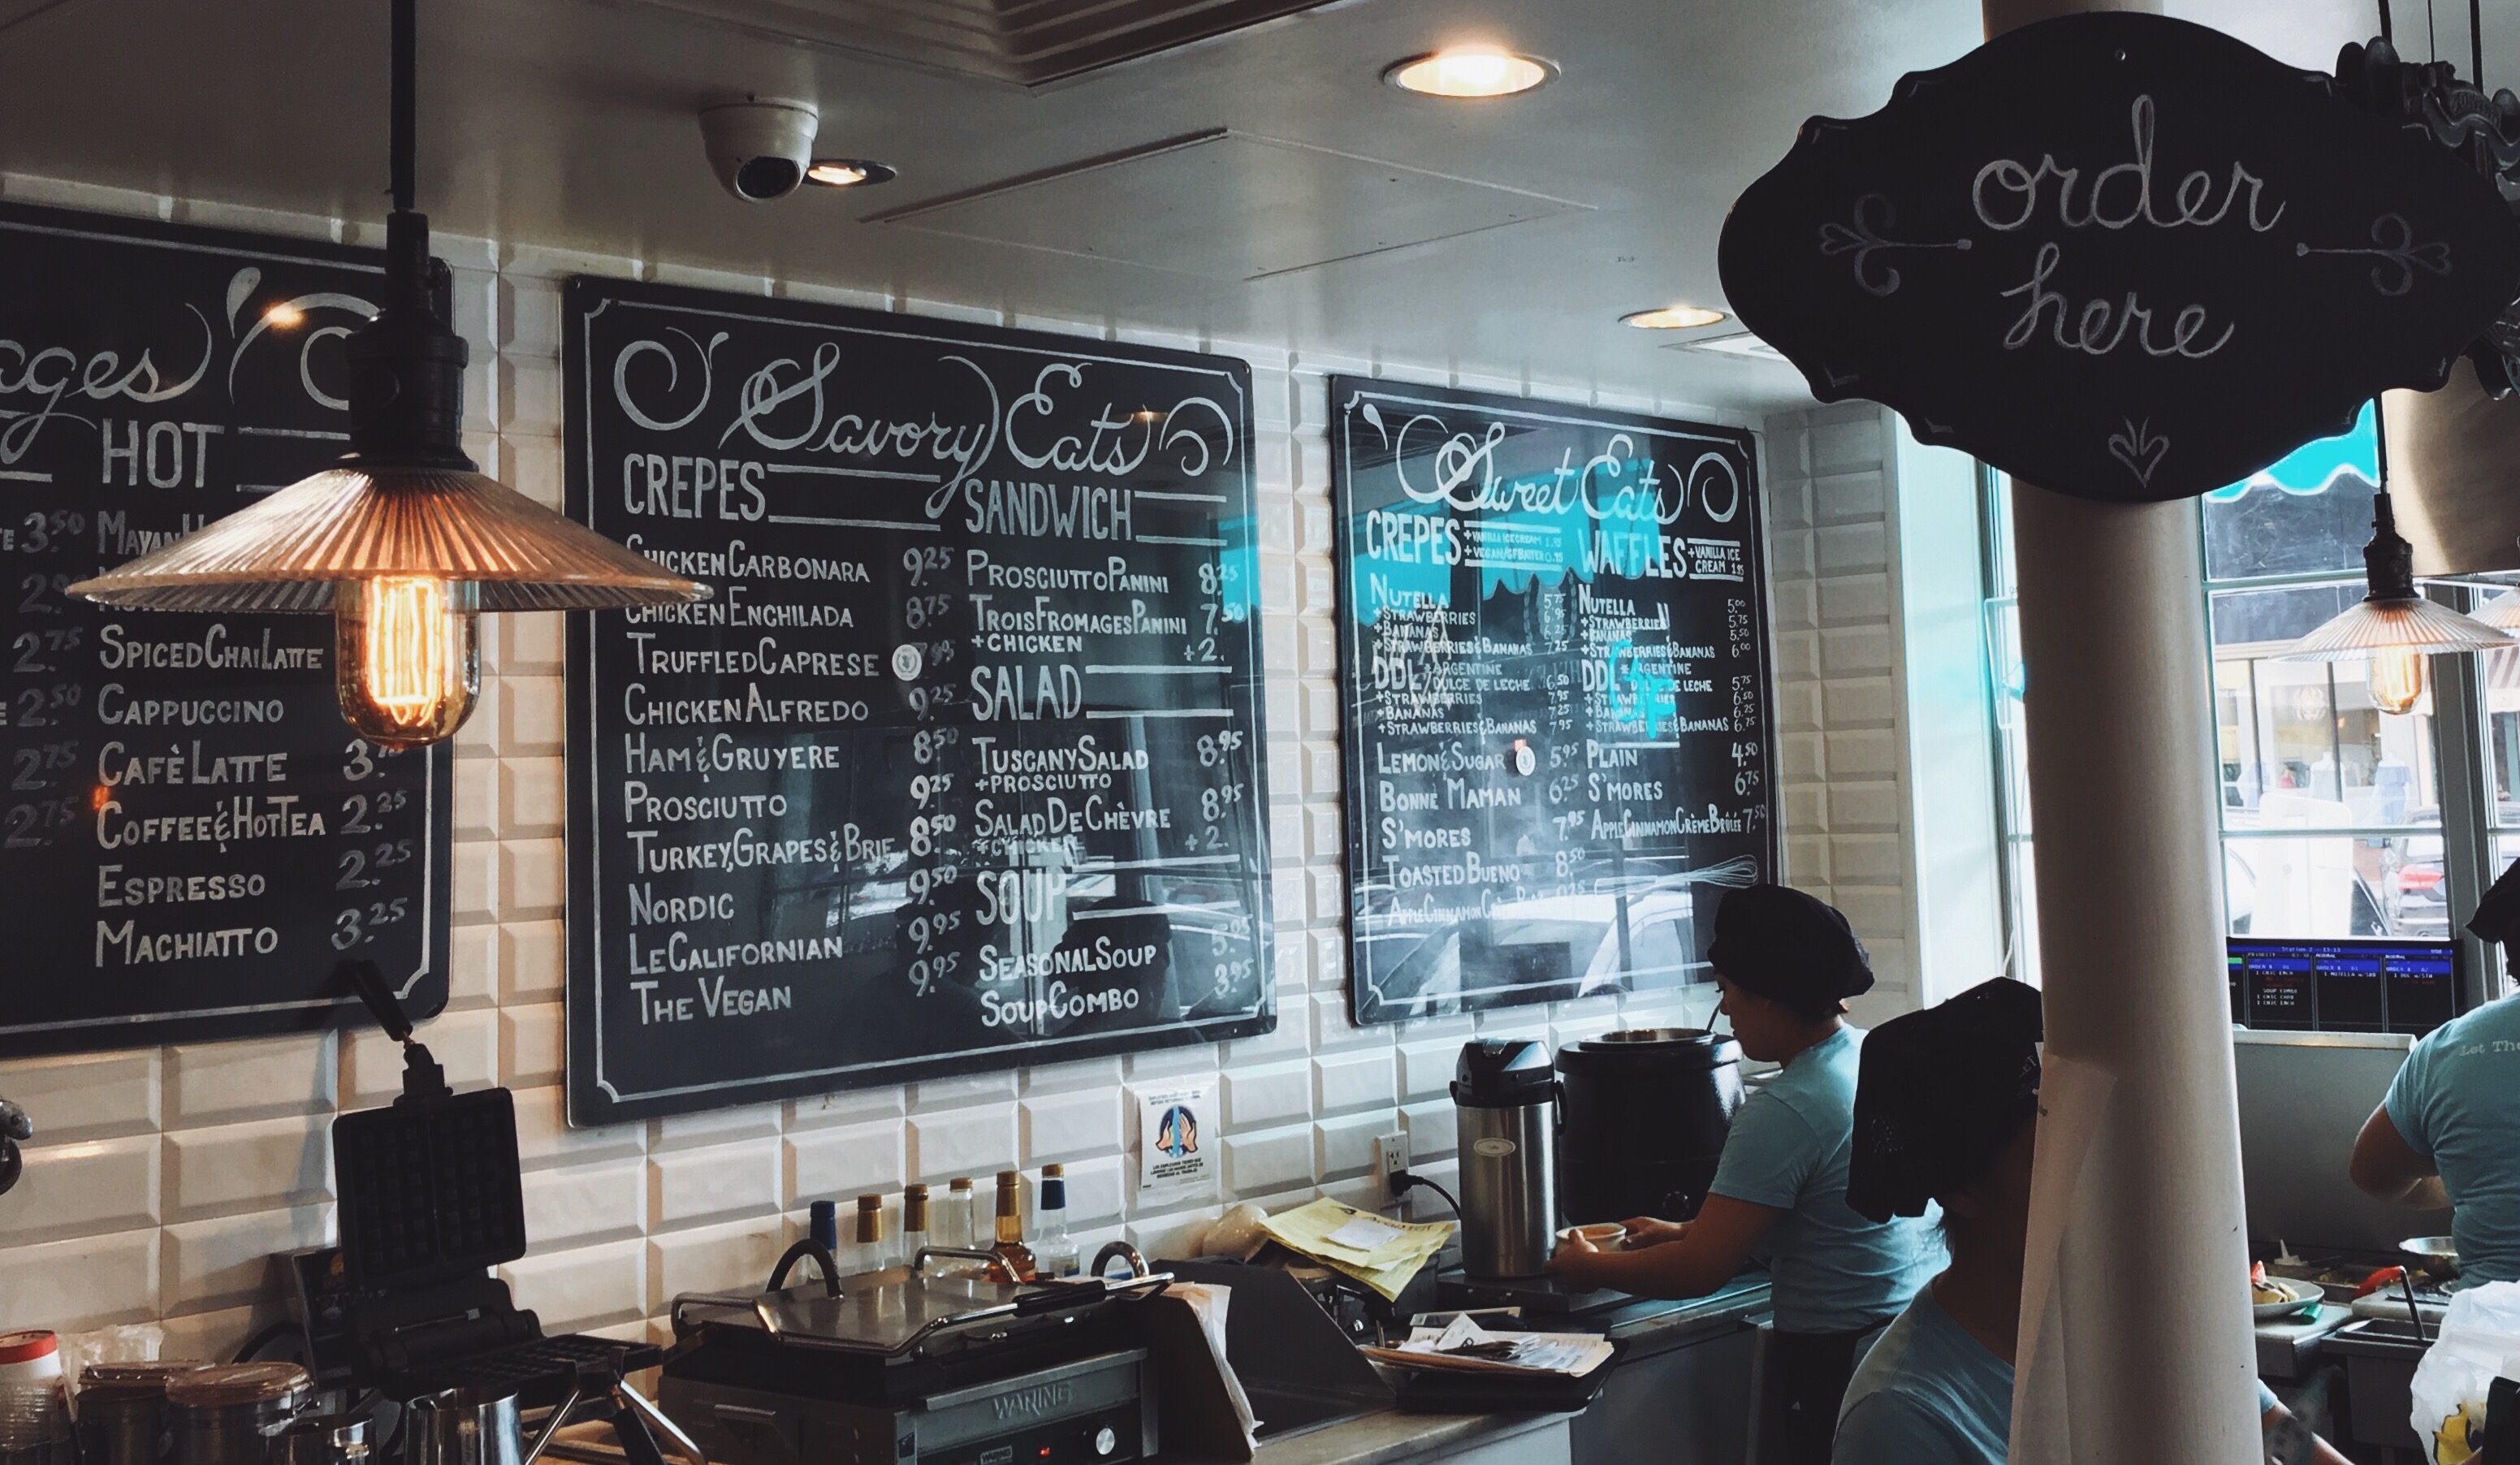 ages
HOT
3.50 MAYAN H
2.
2.75 SPICED CHAI LATTE
2.50 CAPPUCCINO
2.75 CAFÈ LATTE 3.
2.75 COFFEE & HOT TEA 2.25
ESPRESSO 2.25
MACHIATTO 3.25
Savory Eats
CREPES
CHICKEN CARBONARA 9.25
CHICKEN ENCHILADA 8.75
TRUFFLED CAPRESE 7.95
CHICKEN ALFREDO 9.25
HAM & GRUYERE 8.50
PROSCIUTTO 9.25
TURKEY, GRAPES & BRIE 8.50
NORDIC 9.50
LE CALIFORNIAN 9.95
THE VEGAN 9.95
SANDWICH
PROSCIUTTO PANINI 8.25
TROIS FROMAGES PANINI 7.50
+CHICKEN +2.
SALAD
TUSCANY SALAD 8.95
+PROSCIUTTO
SALAD DE CHÈVRE 8.95
+CHICKEN +2.
SOUP
SEASONAL SOUP 5.95
SOUP COMBO 3.95
Sweet Eats
CREPES +VANILLA ICE CREAM 1.95
+VEGAN/GF BATTER 0.75
NUTELLA 5.75
+STRAWBERRIES 6.95
+BANANAS 6.25
+STRAWBERRIES & BANANAS 7.25
DDL *ARGENTINE
DULCE DE LECHE 6.50
+STRAWBERRIES 7.95
+BANANAS 7.25
+STRAWBERRIES & BANANAS 7.95
LEMON & SUGAR 5.95
BONNE MAMAN 6.25
S'MORES 7.95
TOASTED BUENO 8.50
APPLE CINNAMON
WAFFLES +VANILLA ICE
CREAM 1.95
NUTELLA 5.00
+STRAWBERRIES 5.75
+BANANAS 5.50
+STRAWBERRIES & BANANAS 6.00
DDL *ARGENTINE
DE LECHE 5.75
+STRAWBERRIES 6.50
+BANANAS 6.25
+STRAWBERRIES & BANANAS 6.75
PLAIN 4.50
S'MORES 6.75
APPLE CINNAMON CRÈME BRÛLÉE 7.50
order
here
WARING
Let The